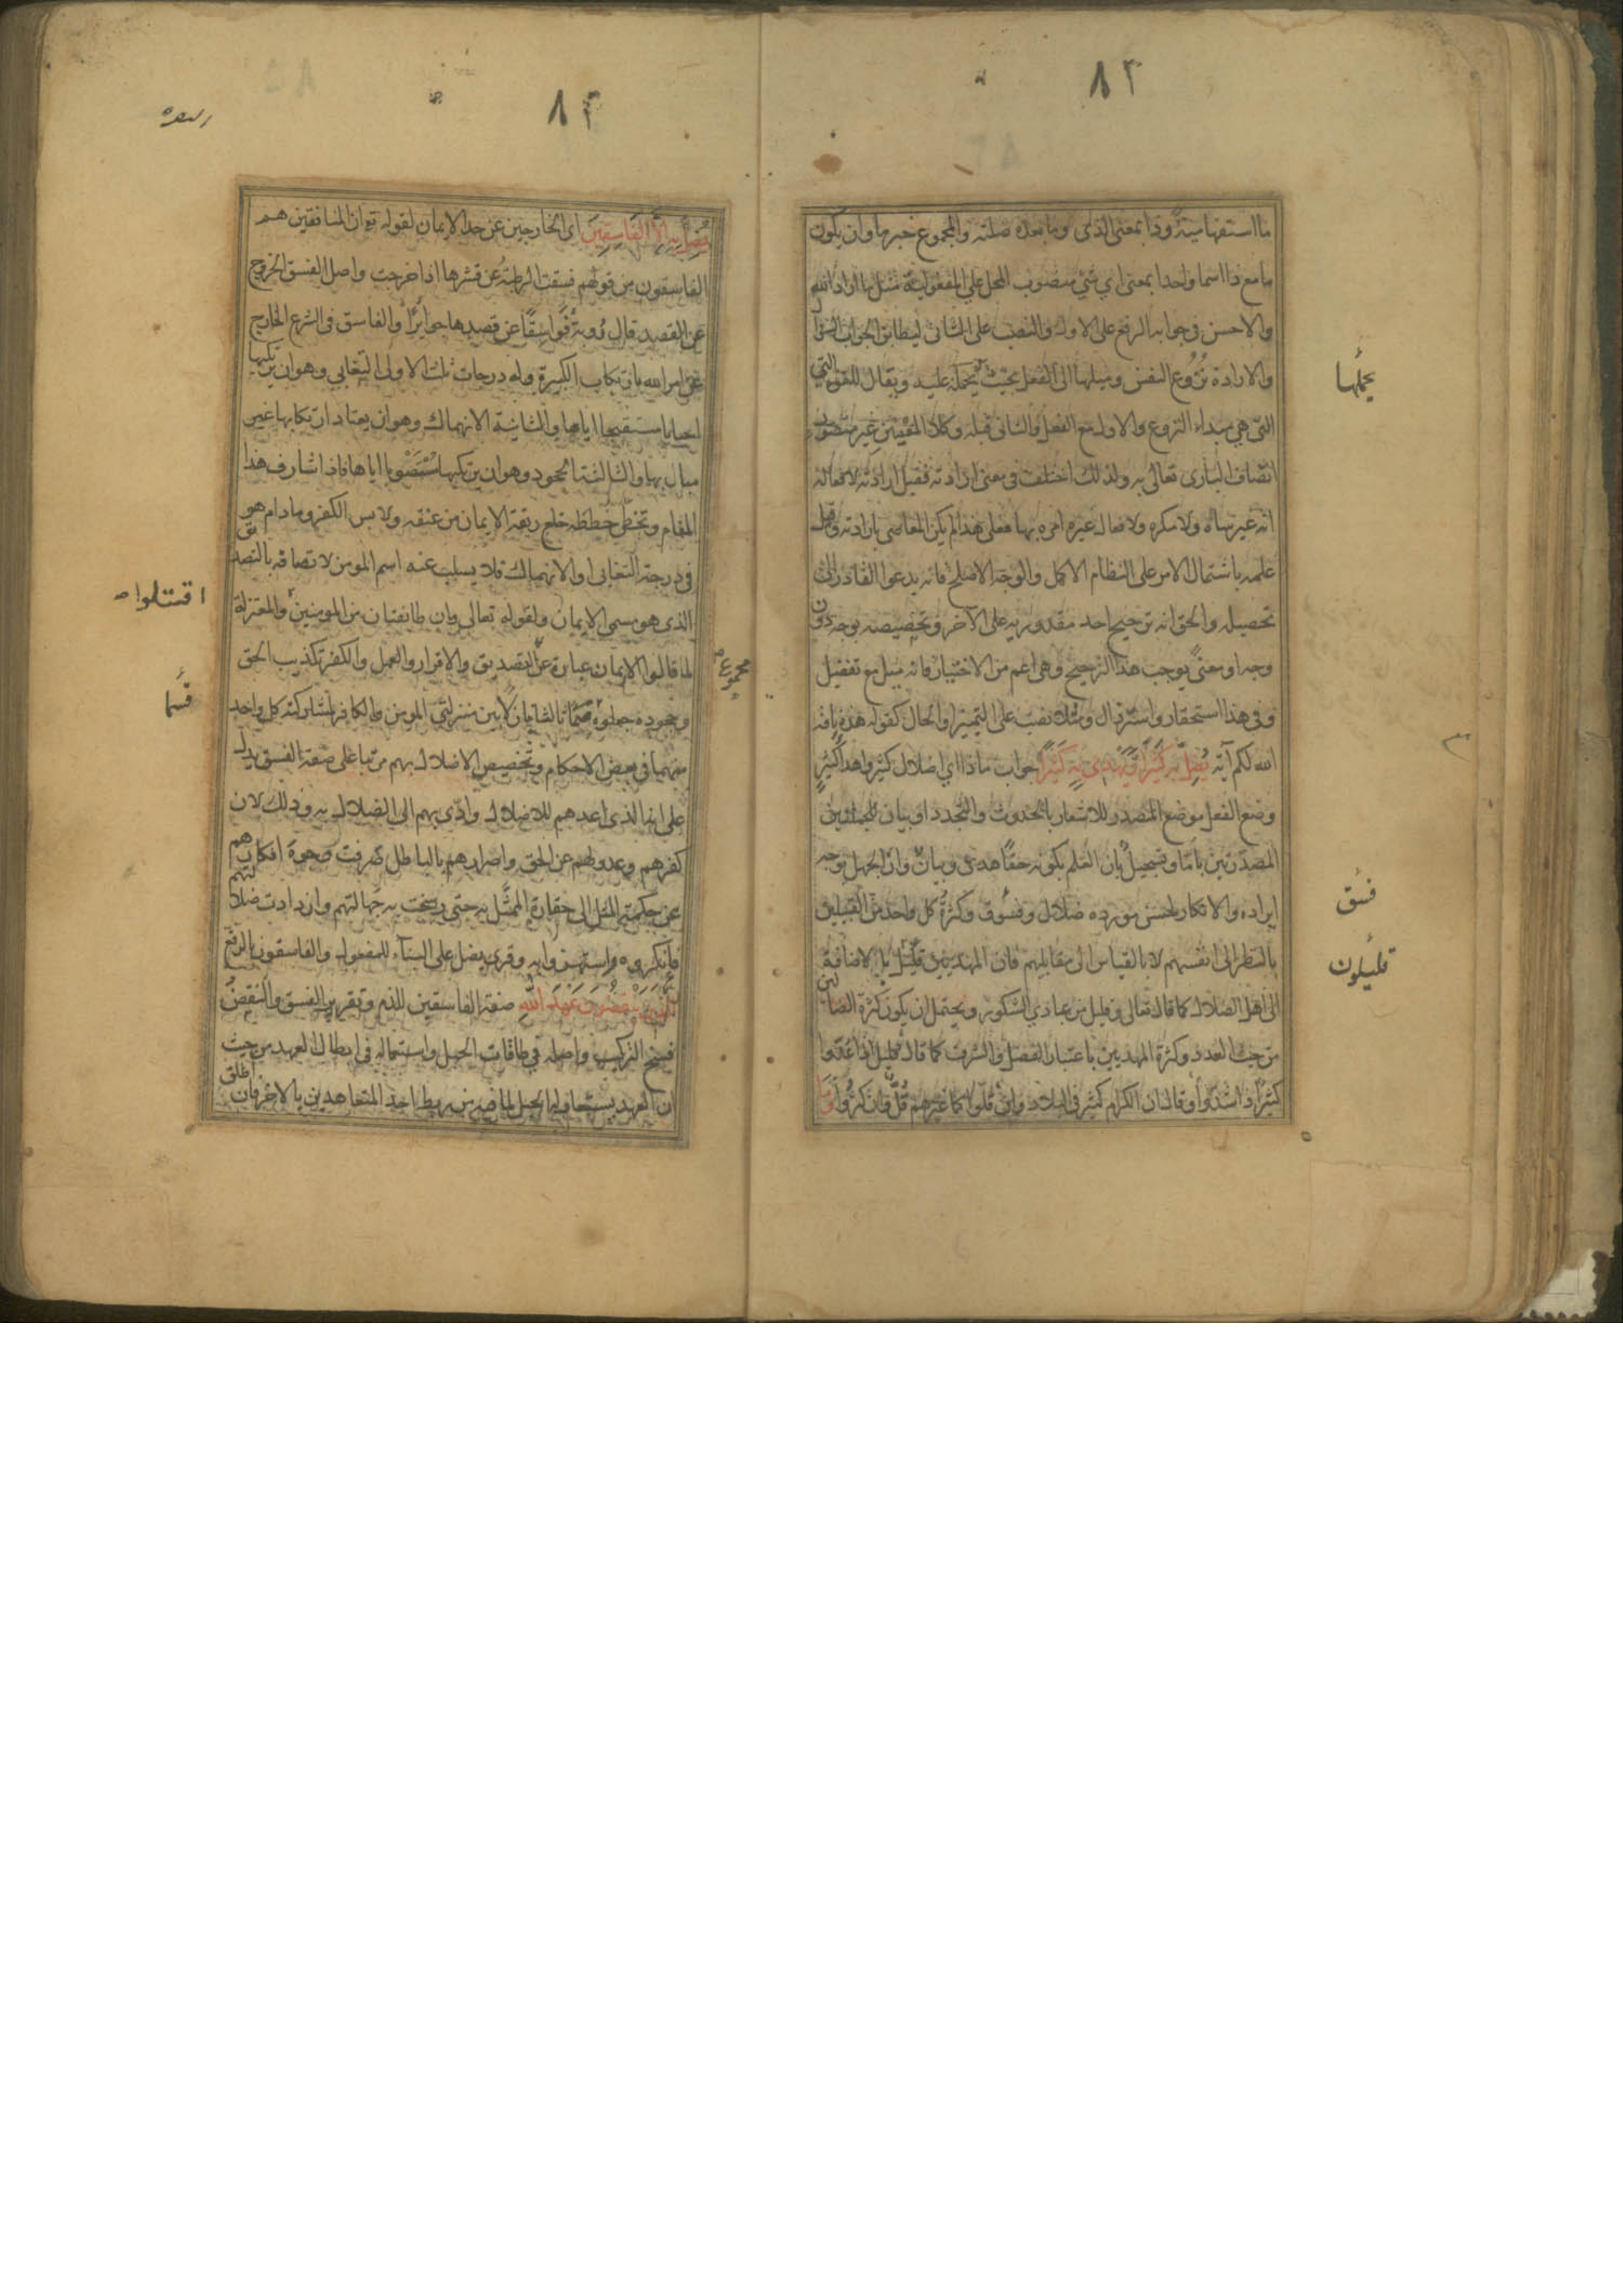 ٨٢
ما استفهامية وذا بمعنى الذى وما بعده صلته والمجموع خبرها وان يكون
ما مع ذا اسما واحدا بمعنى اي شئ منصوب المحل على المفعولية مثل ما اراد الله
والاحسن فى جوابه الرفع على الاول والنصب على الثانى ليطابق الجواب السوال
والارادة نزوع النفس وميلها الى الفعل بحيث يحمله عليه ويقال للقوة التي
التى هي مبداء النزوع والاول مع الفعل والثانى قبله وكلا المعنيين غير متصور
اتصاف البارى تعالى به ولذلك اختلف فى معنى ارادته فقيل ارادته لافعاله
انه غير ساه ولا مكره ولافعال غيره امره بها فعلى هذا لم يكن المعاصى بارادته وقيل
علمه باشتمال الامر على النظام الاكمل والوجه الاصلح فانه يدعوا القادر الى
تحصيله والحق انه ترجيح احد مقدوريه على الاخر وتخصيصه بوجه دون
وجه او معنى يوجب هذا الترجيح وهى اعم من الاختيار فانه ميل مع تفضيل
وفى هذا استحقار واسترذال ومثلا نصب على التميز او الحال كقوله هذه ناقة
الله لكم آية يُضِلُّ بِهِ كَثِيرًا وَيَهْدِى بِهِ كَثِيرًا جواب ماذا اي اضلال كثير واهداء كثير
وضع الفعل موضع المصدر للاشعار بالحدوث والتجدد او بيان للجملتين
المصدرتين باما وتسجيل بان العلم بكونه حقا هدى وبيان وان الجهل بوجه
ايراده والانكار لحسن مورده ضلال وفسوق وكثرة كل واحد من القبيلين
بالنظر الى انفسهم لا بالقياس الى مقابليهم فان المهديين قليل بالاضافة
الى اهل الضلال كما قال تعالى وقليل من عبادي الشكور ويحتمل ان يكون كثرة الضالين
من حيث العدد وكثرة المهديين باعتبار الفضل والشرف كما قال قليل اذا عدوا
كثير اذا شدوا وقال ان الكرام كثير فى البلاد وان قلوا كما غيرهم قل وان كثروا وَمَا
يحملها
فسق
قليلون
٨٣
يُضِلُّ بِهِ إِلَّا الْفَاسِقِينَ اى الخارجين عن حد الايمان لقوله تع ان المنافقين هم
الفاسقون من قولهم فسقت الرطبة عن قشرها اذا خرجت واصل الفسق الخروج
عن القصد قال رؤبة فواسقا عن قصدها جوايرا والفاسق فى الشرع الخارج
عن امر الله بارتكاب الكبيرة وله درجات ثلث الاولى التغابي وهو ان يرتكبها
احيانا مستقبحا اياها والثانية الانهماك وهو ان يعتاد ارتكابها غير
مبال بها والثالثة الجحود وهو ان يرتكبها مستصوبا اياها فاذا شارف هذا
المقام وتخطى خططه خلع ربقة الايمان من عنقه ولابس الكفر وما دام هو
فى درجة التغابى او الانهماك فلا يسلب عنه اسم المومن لاتصافه بالتصديق
الذى هو مسمى الايمان ولقوله تعالى وان طائفتان من المومنين والمعتزلة
لما قالوا الايمان عبارة عن التصديق والاقرار والعمل والكفر تكذيب الحق
وجحوده جعلوه قسما ثالثا نازلا بين منزلتى المومن والكافر لمشاركته كل واحد
منهما فى بعض الاحكام وتخصيص الاضلال بهم مرتبا على صفة الفسق يدل
على انه الذى اعدهم للاضلال وادى بهم الى الضلال به وذلك لان
كفرهم وعدولهم عن الحق واصرارهم بالباطل صرفت وجوه افكارهم
عن حكمة المثل الى حقارة الممثل به حتى رسخت به جهالتهم وازدادت ضلالتهم
فانكروه واستهزوا به وقرى يضل على البناء للمفعول والفاسقون بالرفع
الَّذِينَ يَنْقُضُونَ عَهْدَ اللَّهِ صفة الفاسقين للذم وتقرير الفسق والنقض
فسخ التركيب واصله فى طاقات الحبل واستعماله فى ابطال العهد من حيث
ان العهد يستعار له الحبل لما فيه من ربط احد المتعاهدين بالاخر فان اطلق
اقتتلوا
مجموع
قسما